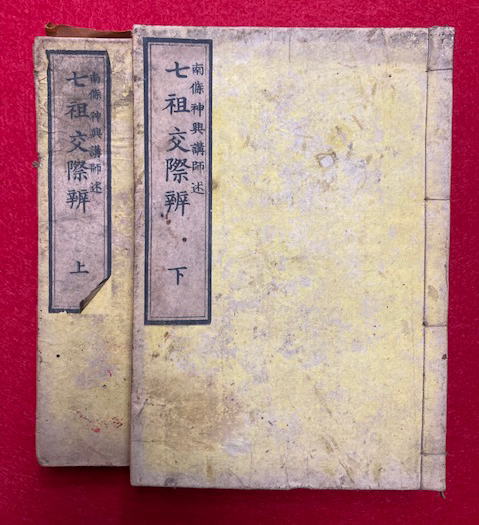 南條神興講師述
七祖交際辨
下
南條神興講師述
七祖交際辨
上